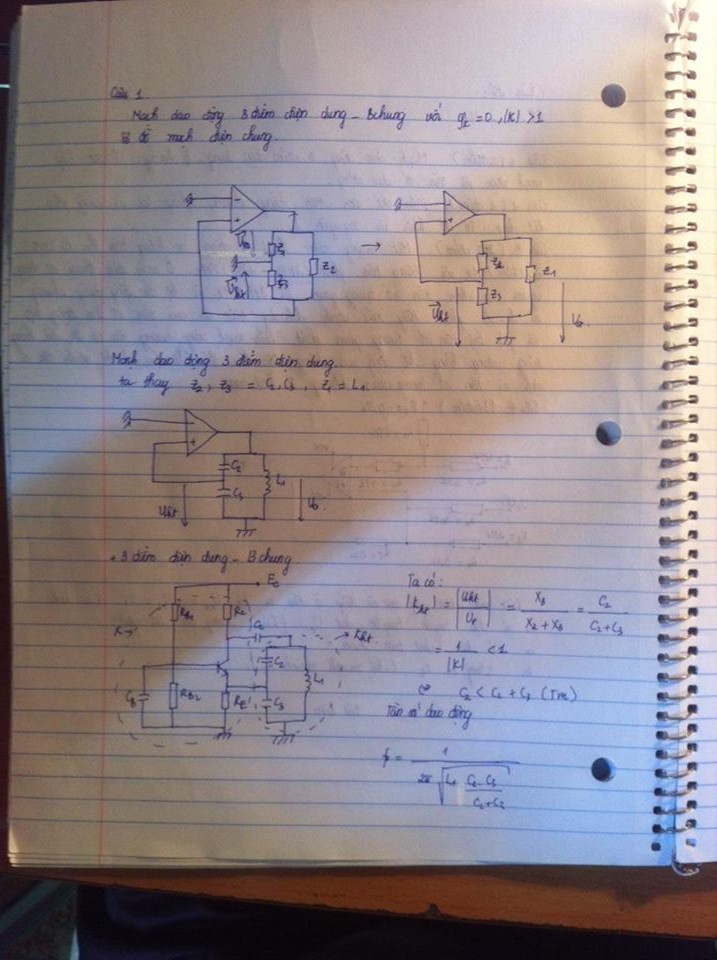 Câu 1
Mạch dao động 3 điểm điện dung - Bchung với φk = 0, |K| > 1
Sơ đồ mạch điện chung.
- + Z1 Z3 Z2 Uht
→
- + Z2 Z3 Z1 Uht Ur
Mạch dao động 3 điểm điện dung.
ta thay Z2, Z3 = C2, C3, Z1 = L1.
- + C2 C3 L1 Uht Ur
• 3 điểm điện dung - Bchung
Ec
RB1 Rc
K→
C2 L1 Kht
CB RB2 RE C3
Ta có:
|Kht| = |Uht / Ur| = X3 / (X2 + X3) = C2 / (C2 + C3)
= 1 / |K| < 1
C2 < C2 + C3 (TM)
Tần số dao động
f = 1 / (2π √(L1 C2.C3 / (C2 + C3)))